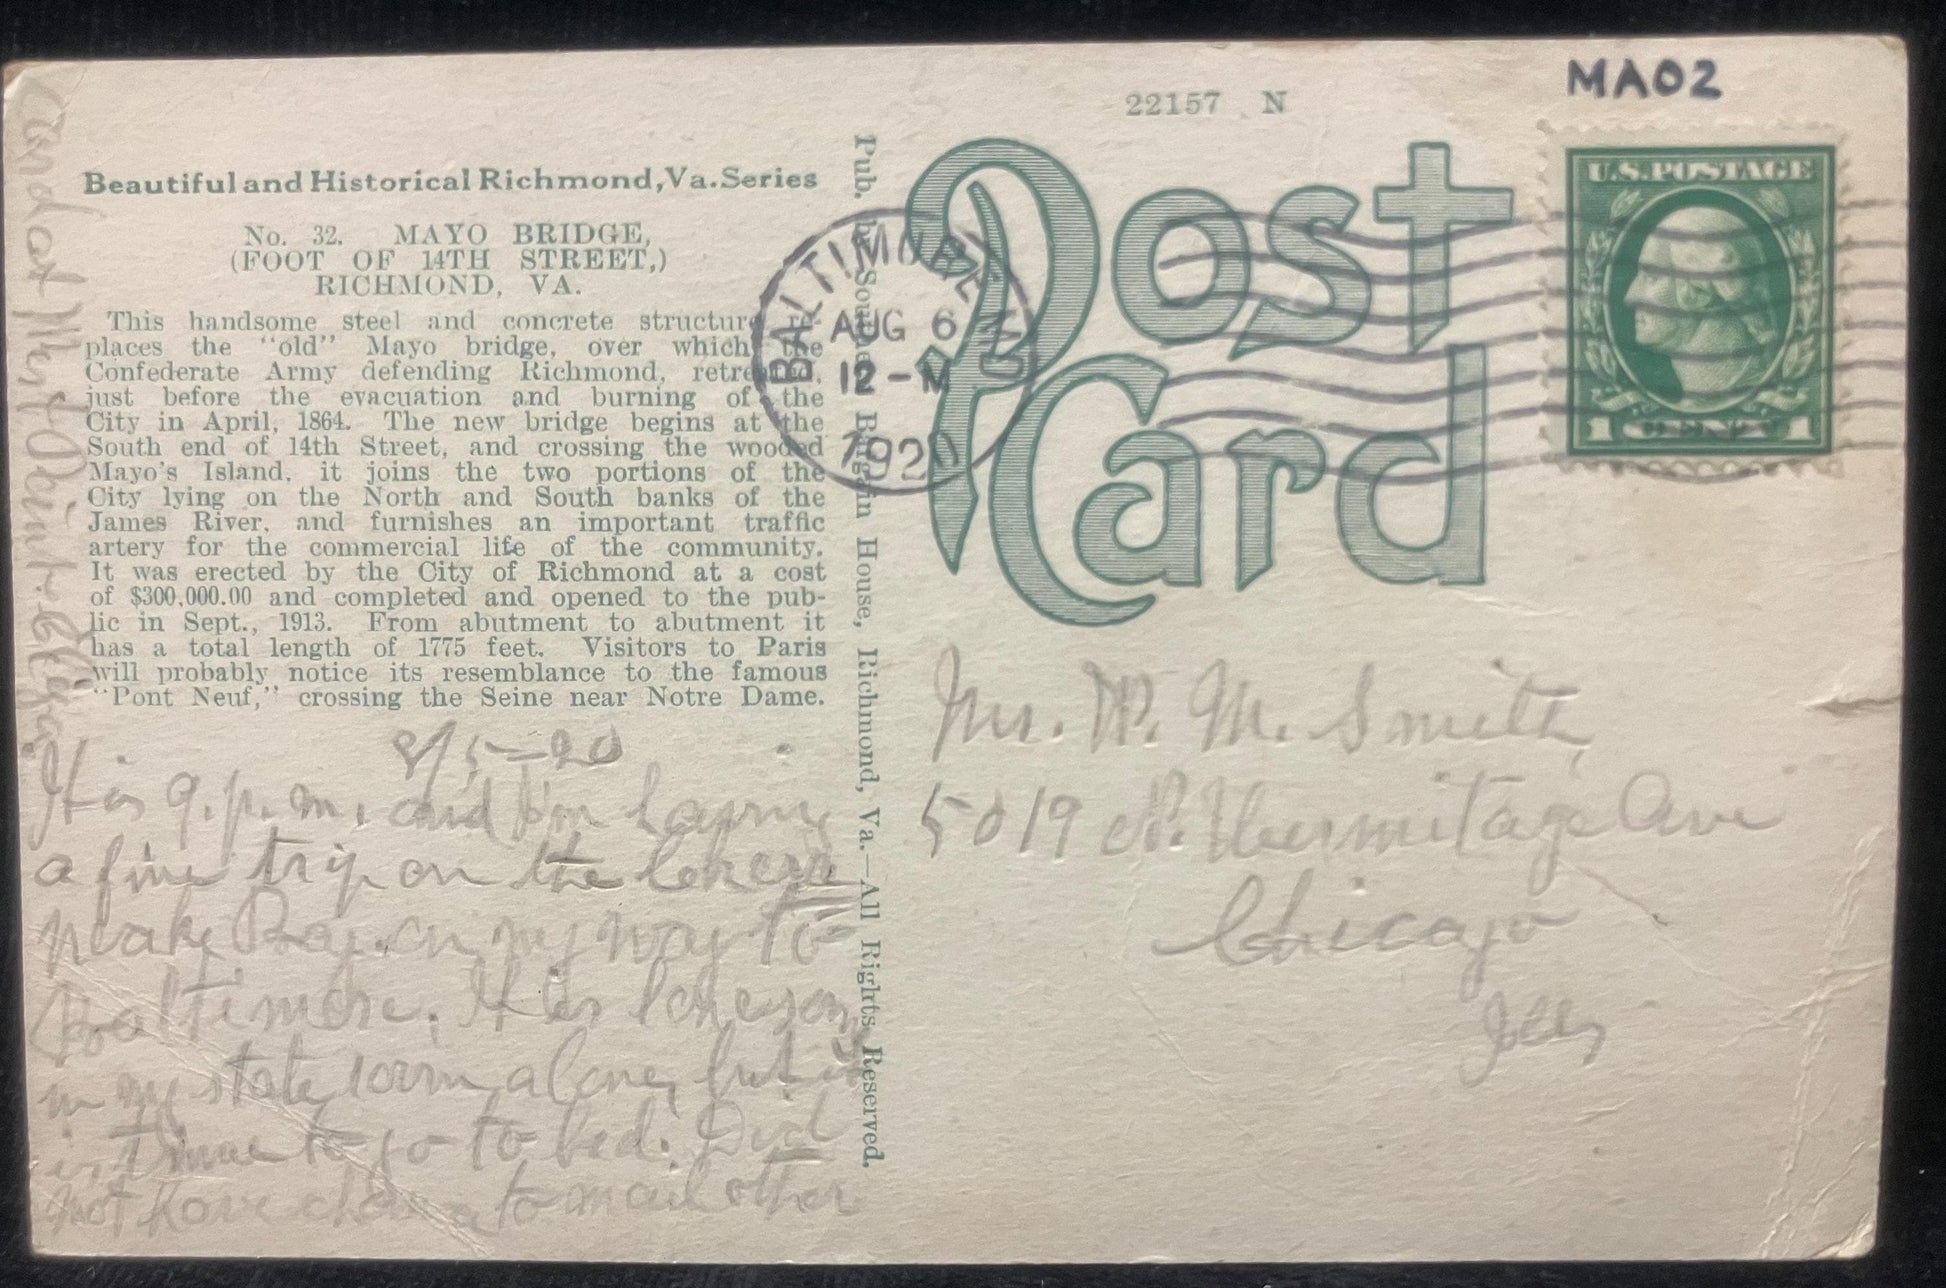 MA02
22157 N
Post
Card
U.S. POSTAGE
1 CENT 1
BALTIMORE, MD
AUG 6
12-M
1920
Beautiful and Historical Richmond, Va. Series
No. 32. MAYO BRIDGE,
(FOOT OF 14TH STREET,)
RICHMOND, VA.
This handsome steel and concrete structure re-
places the "old" Mayo bridge, over which the
Confederate Army defending Richmond, retreated,
just before the evacuation and burning of the
City in April, 1864. The new bridge begins at the
South end of 14th Street, and crossing the wooded
Mayo's Island, it joins the two portions of the
City lying on the North and South banks of the
James River, and furnishes an important traffic
artery for the commercial life of the community.
It was erected by the City of Richmond at a cost
of $300,000.00 and completed and opened to the pub-
lic in Sept., 1913. From abutment to abutment it
has a total length of 1775 feet. Visitors to Paris
will probably notice its resemblance to the famous
"Pont Neuf," crossing the Seine near Notre Dame.
Pub. by Southern Bargain House, Richmond, Va.—All Rights Reserved.
8/5-20
It is 9. p. m. and I'm having
a fine trip on the Chesa
peake Bay. on my way to
Baltimore. It is lonesome
in my state room alone, but
it time to go to bed. Did
not have chance to mail other
Card at West Point.
Mr. W. M. Smith
5019 N. Hermitage Ave
Chicago
Ills